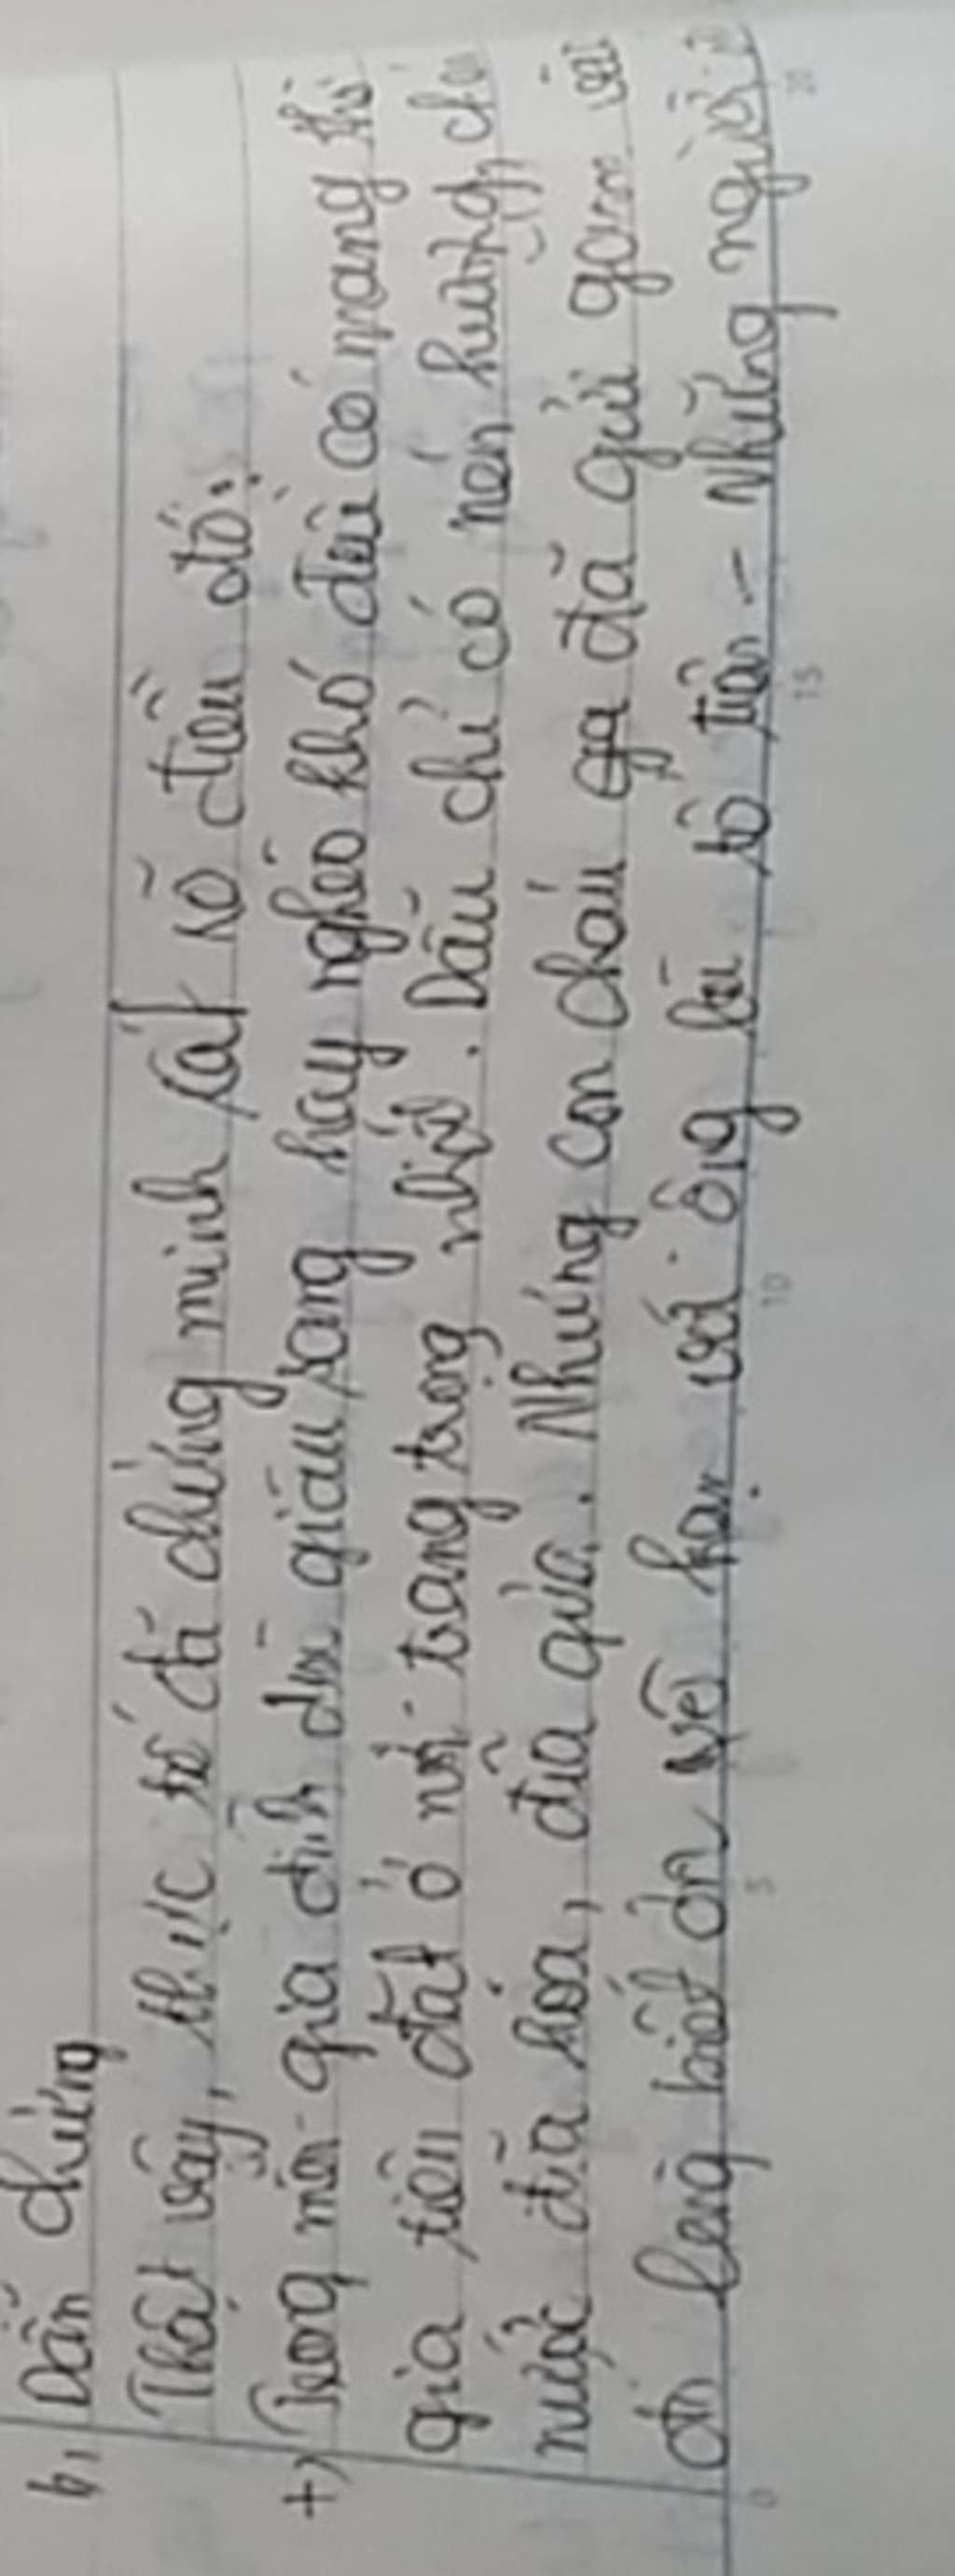 b, Dẫn chứng
Thật vậy, thực tế đã chứng minh rất rõ điều đó:
+) Trong mỗi gia đình dù giàu sang hay nghèo khó đều có mang thờ
gia tiên đặt ở nơi trang trọng nhất. Dẫu chỉ có nén hương, chén
nước đĩa hoa, đĩa quả. Nhưng con cháu đã gửi gắm vài
đó lòng biết ơn vô hạn với ông bà tổ tiên - Những người